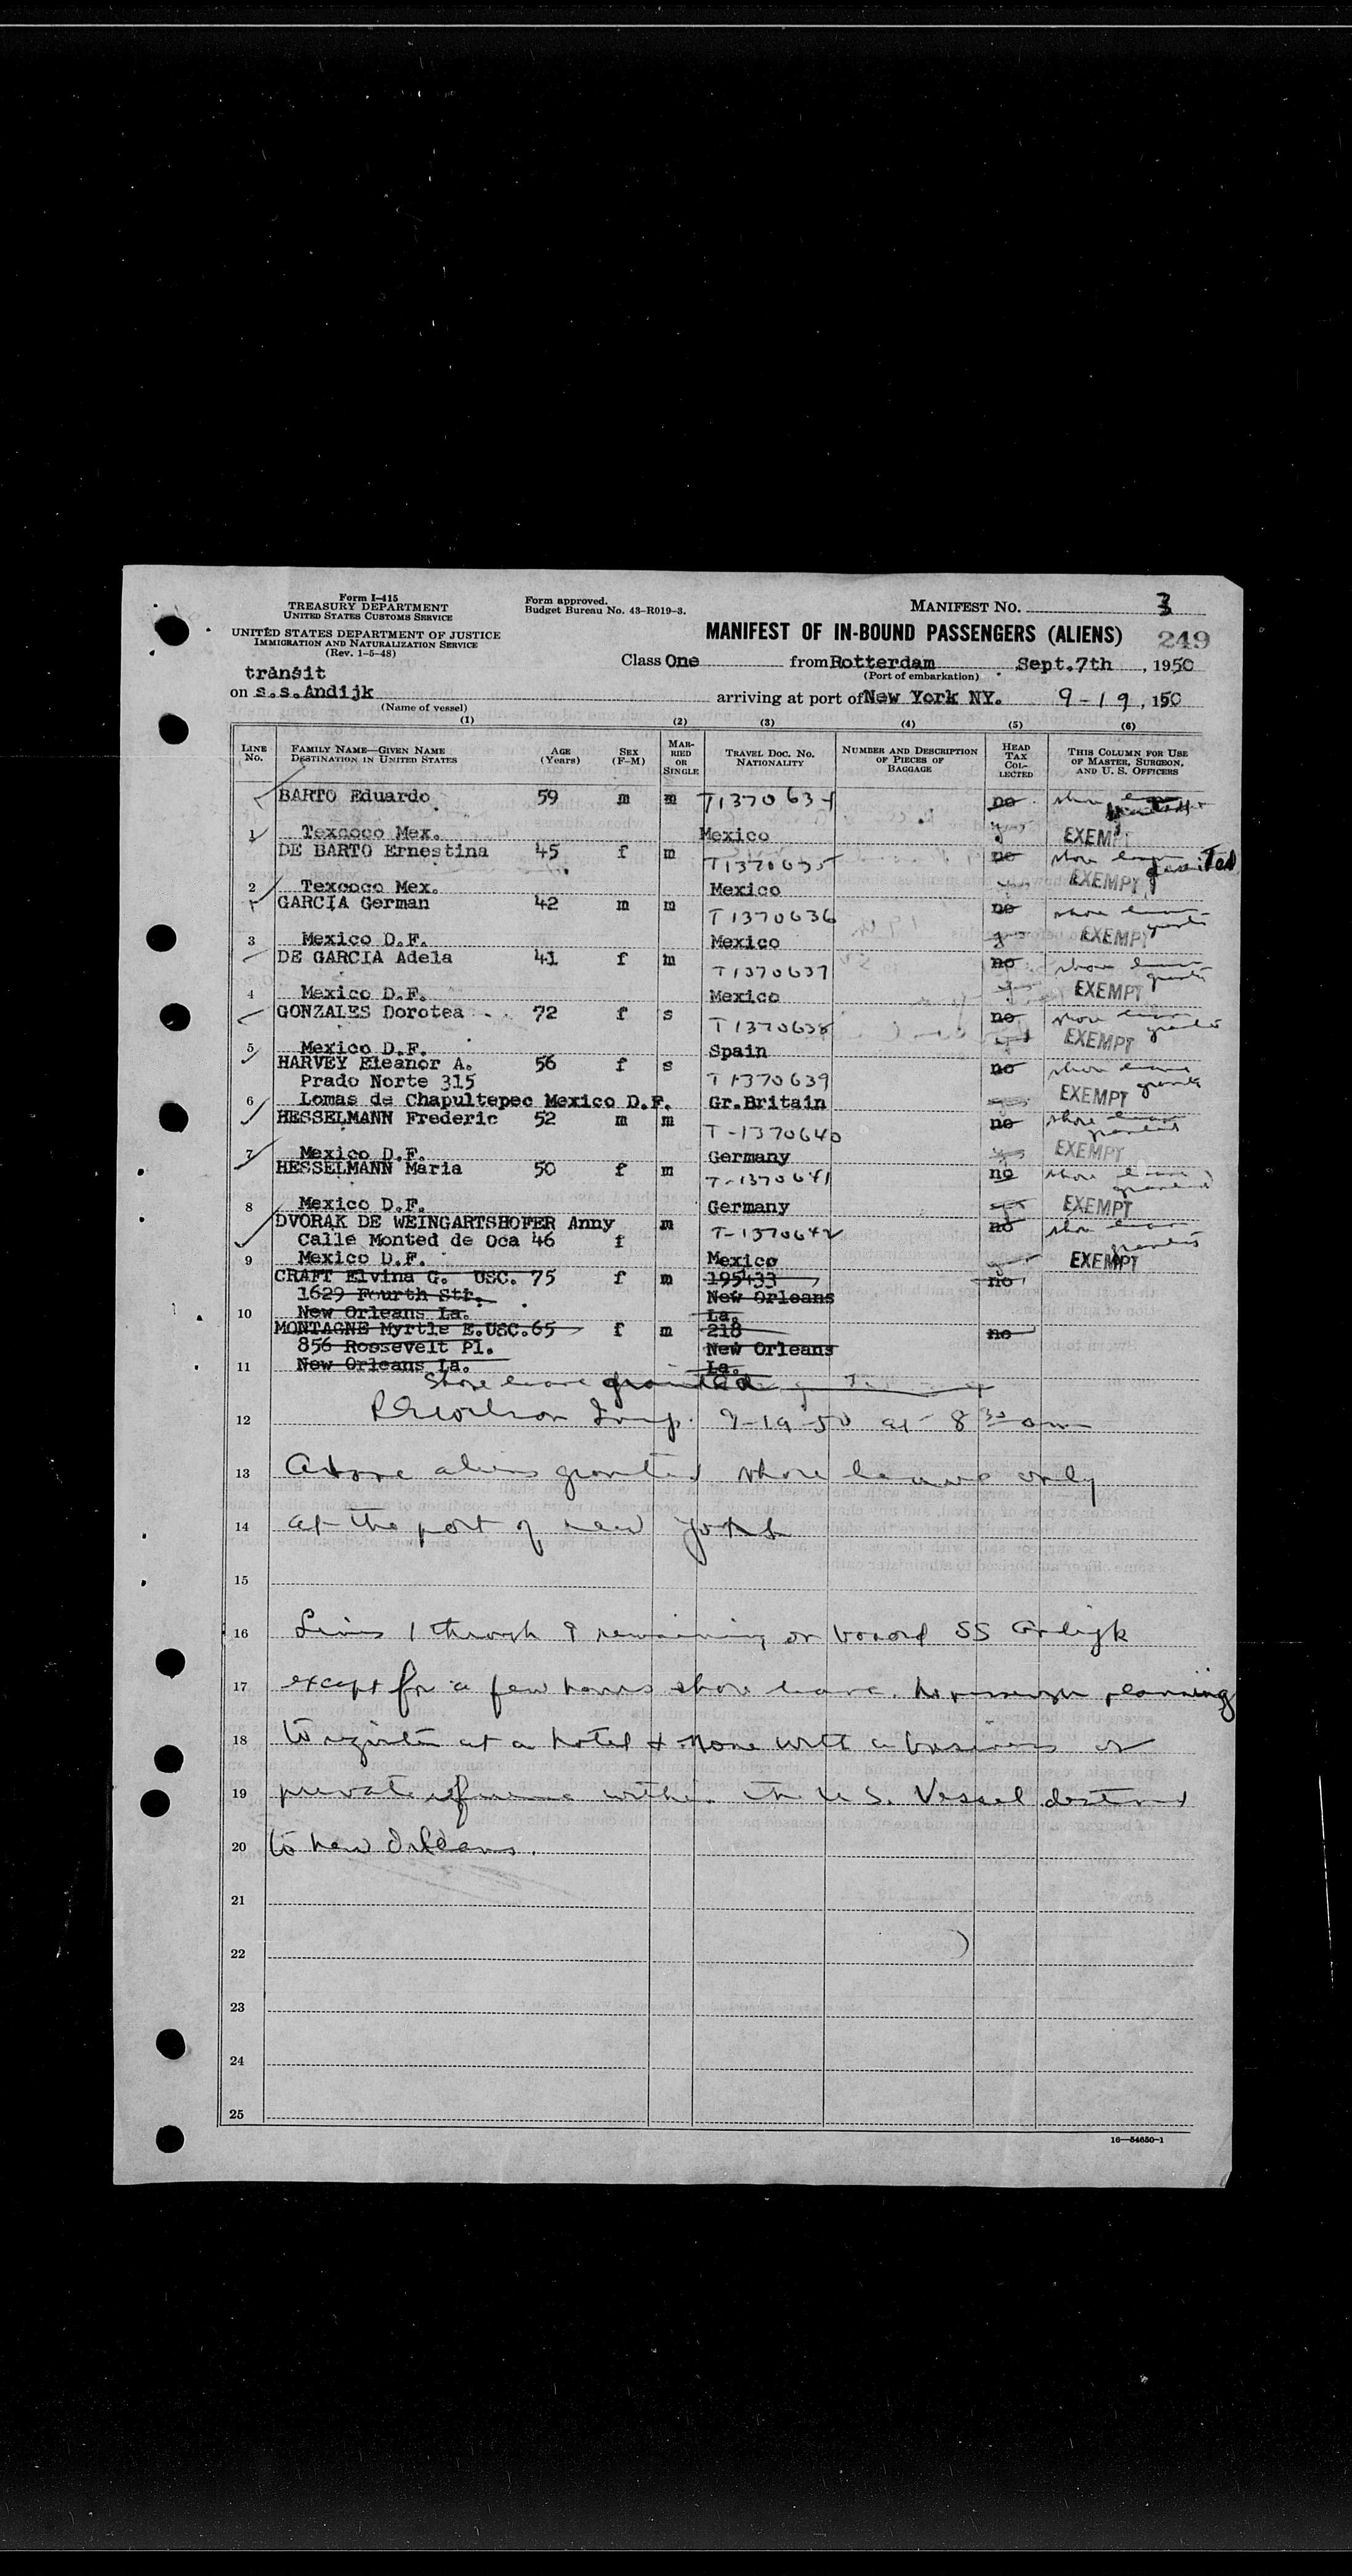 Form I-415
TREASURY DEPARTMENT
UNITED STATES CUSTOMS SERVICE
UNITED STATES DEPARTMENT OF JUSTICE
IMMIGRATION AND NATURALIZATION SERVICE
(Rev. 1-5-48)
Form approved.
Budget Bureau No. 43-R019-3.
MANIFEST NO. 3
MANIFEST OF IN-BOUND PASSENGERS (ALIENS) 249
Class One from Rotterdam Sept.7th, 1950
(Port of embarkation)
transit
on s.s.Andijk arriving at port of New York NY. 9-19, 1950
(Name of vessel)
(1) (2) (3) (4) (5) (6)
LINE NO. FAMILY NAME—GIVEN NAME DESTINATION IN UNITED STATES AGE (Years) SEX (F-M) MARRIED OR SINGLE TRAVEL DOC. NO. NATIONALITY NUMBER AND DESCRIPTION OF PIECES OF BAGGAGE HEAD TAX COLLECTED THIS COLUMN FOR USE OF MASTER, SURGEON, AND U. S. OFFICERS
BARTO Eduardo 59 m m T1370634 no shore leave
1 Texcoco Mex. Mexico EXEMPT
DE BARTO Ernestina 45 f m T1370635 no shore leave granted
2 Texcoco Mex. Mexico EXEMPT
GARCIA German 42 m m T1370636 no shore leave granted
3 Mexico D.F. Mexico EXEMPT
DE GARCIA Adela 41 f m T1370637 no shore leave granted
4 Mexico D.F. Mexico EXEMPT
GONZALES Dorotea 72 f s T1370638 no shore leave granted
5 Mexico D.F. Spain EXEMPT
HARVEY Eleanor A. 56 f s T1370639 no shore leave granted
Prado Norte 315
6 Lomas de Chapultepec Mexico D.F. Gr.Britain EXEMPT
HESSELMANN Frederic 52 m m T-1370640 no shore leave granted
7 Mexico D.F. Germany EXEMPT
HESSELMANN Maria 50 f m T-1370641 no shore leave granted
8 Mexico D.F. Germany EXEMPT
DVORAK DE WEINGARTSHOFER Anny m T-1370642 no shore leave granted
Calle Monted de Oca 46 f
9 Mexico D.F. Mexico EXEMPT
CRAFT Elvina G. USC. 75 f m 195433 no
1629 Fourth Str. New Orleans
10 New Orleans La. La.
MONTAGNE Myrtle E.USC.65 f m 218 no
856 Roosevelt Pl. New Orleans
11 New Orleans La. La.
Shore leave granted
12 Insp. 9-19-50 at 8 30 am
13 Above aliens granted shore leave only
14 at the port of New York
15
16 Lines 1 through 9 remaining on board SS Andijk
17 except for a few hours shore leave. No passenger planning
18 to register at a hotel & none with a business or
19 private within the U.S. Vessel destined
20 to New Orleans.
21
22
23
24
25
16—54650-1